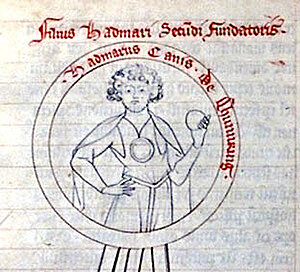 Filius Hadmari Secundi Fundatoris.
Hadmarus Canis · de Chunring